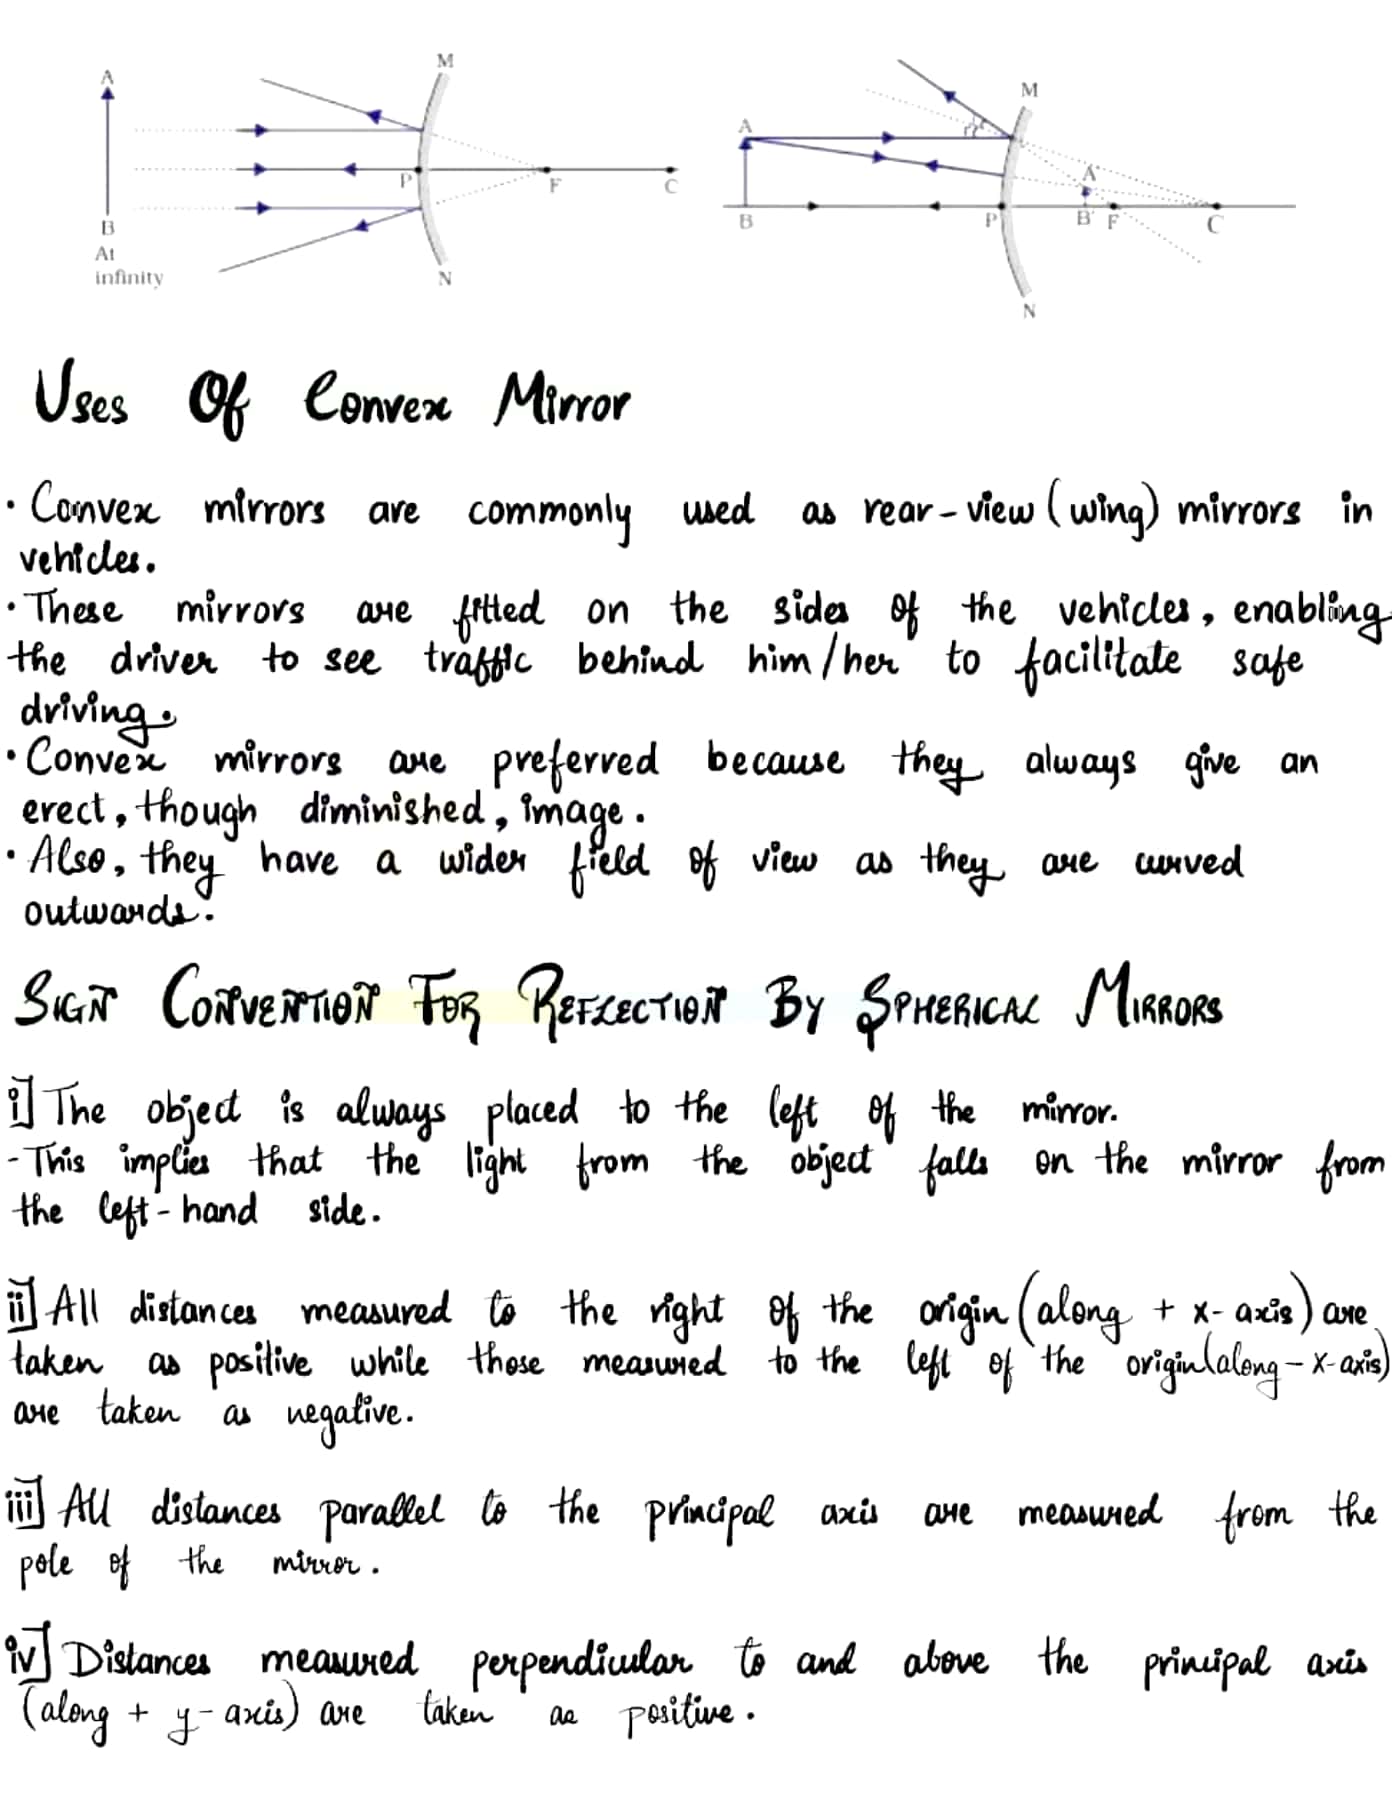 M
A
P
F
C
B
At
infinity
N
M
A
A'
B
P
B'
F
C
N
Uses Of Convex Mirror
• Convex mirrors are commonly used as rear-view (wing) mirrors in
vehicles.
• These mirrors are fitted on the sides of the vehicles, enabling
the driver to see traffic behind him/her to facilitate safe
driving.
• Convex mirrors are preferred because they always give an
erect, though diminished, image.
• Also, they have a wider field of view as they are curved
outwards.
SIGN CONVENTION FOR REFLECTION BY SPHERICAL MIRRORS
i] The object is always placed to the left of the mirror.
- This implies that the light from the object falls on the mirror from
the left-hand side.
ii] All distances measured to the right of the origin (along + x-axis) are
taken as positive while those measured to the left of the origin (along - x-axis)
are taken as negative.
iii] All distances parallel to the principal axis are measured from the
pole of the mirror.
iv] Distances measured perpendicular to and above the principal axis
(along + y-axis) are taken as positive.